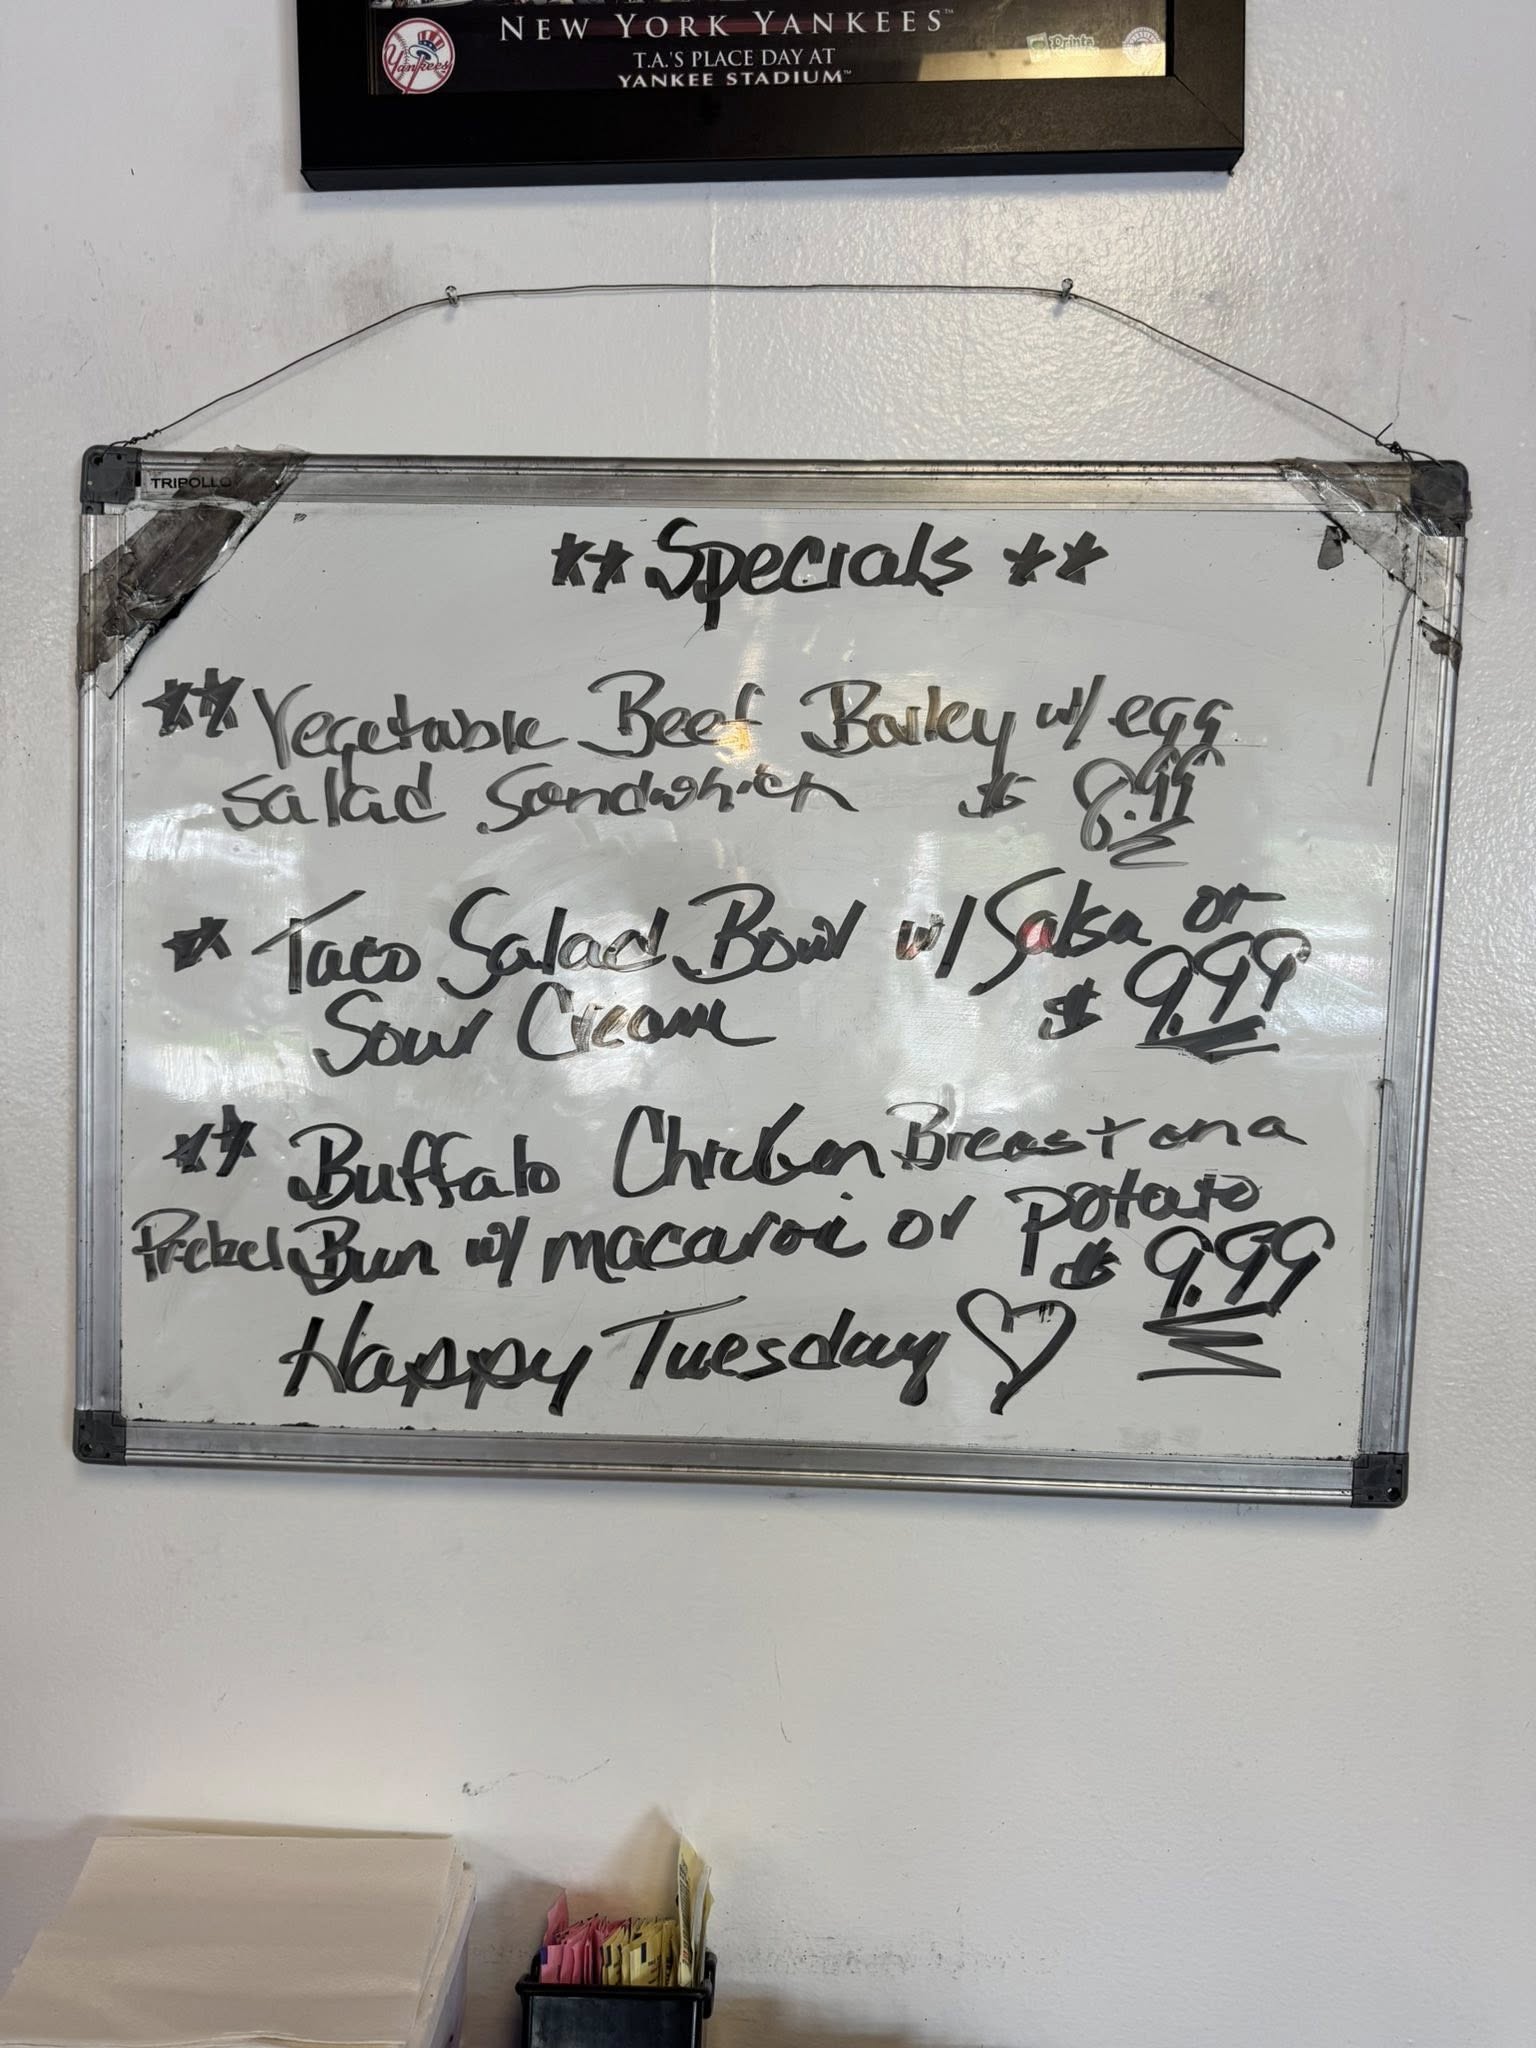 Yankees
NEW YORK YANKEES™
T.A.'S PLACE DAY AT
YANKEE STADIUM™
Prints
TRIPOLLO
** Specials **
** Vegetable Beef Barley w/ egg
salad Sandwhich $ 8.99
* Taco Salad Bowl w/ Salsa or
Sour Cream $ 9.99
** Buffalo Chicken Breast on a
Pretzel Bun w/ macaroni or potato
$ 9.99
Happy Tuesday ♡